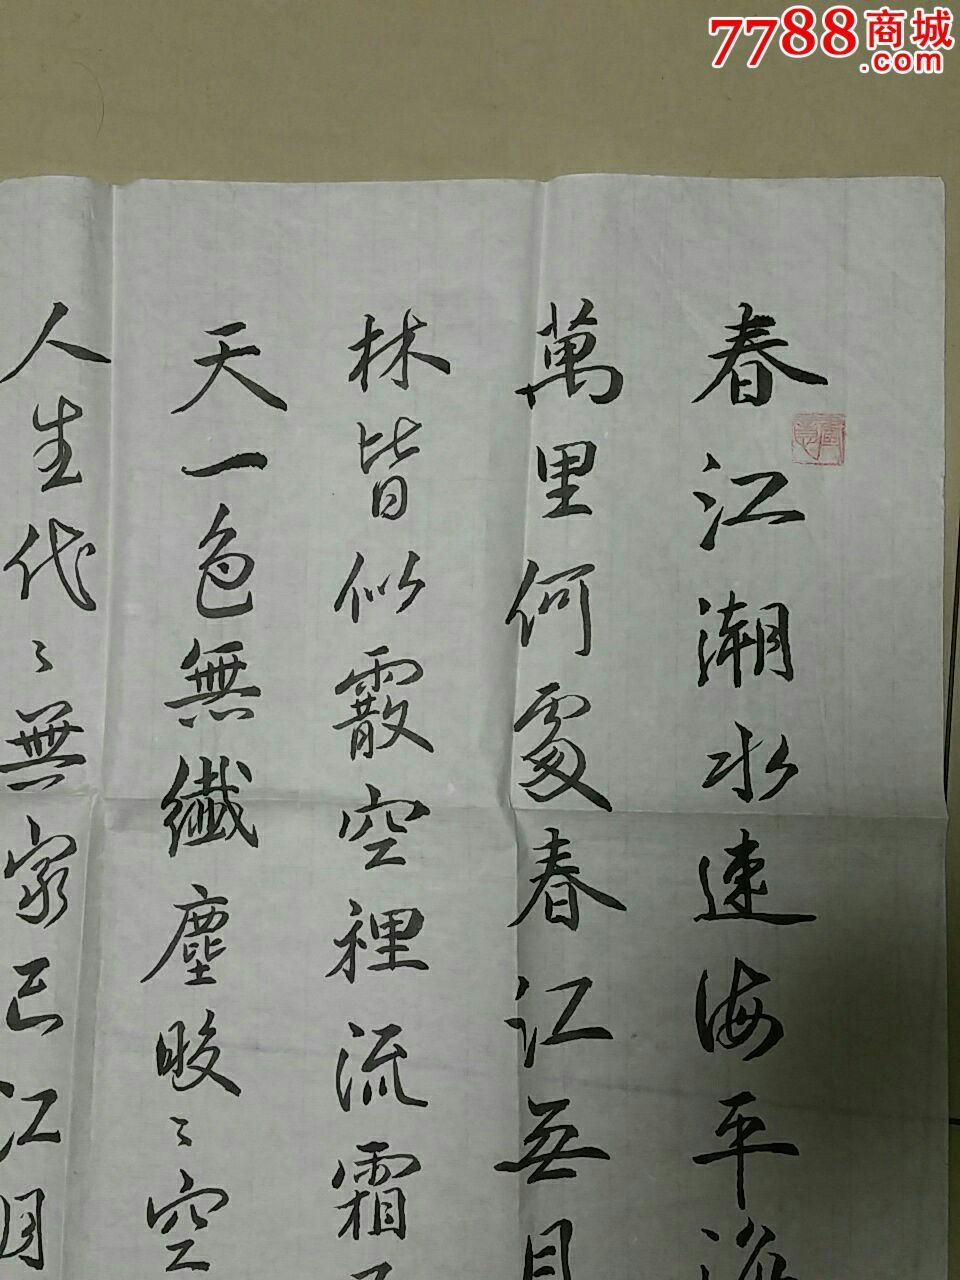 7788商城
.com
春江潮水連海平海
萬里何處春江無月
林皆似霰空裡流霜不
天一色無纖塵皎〻空
人生代〻無窮已江月